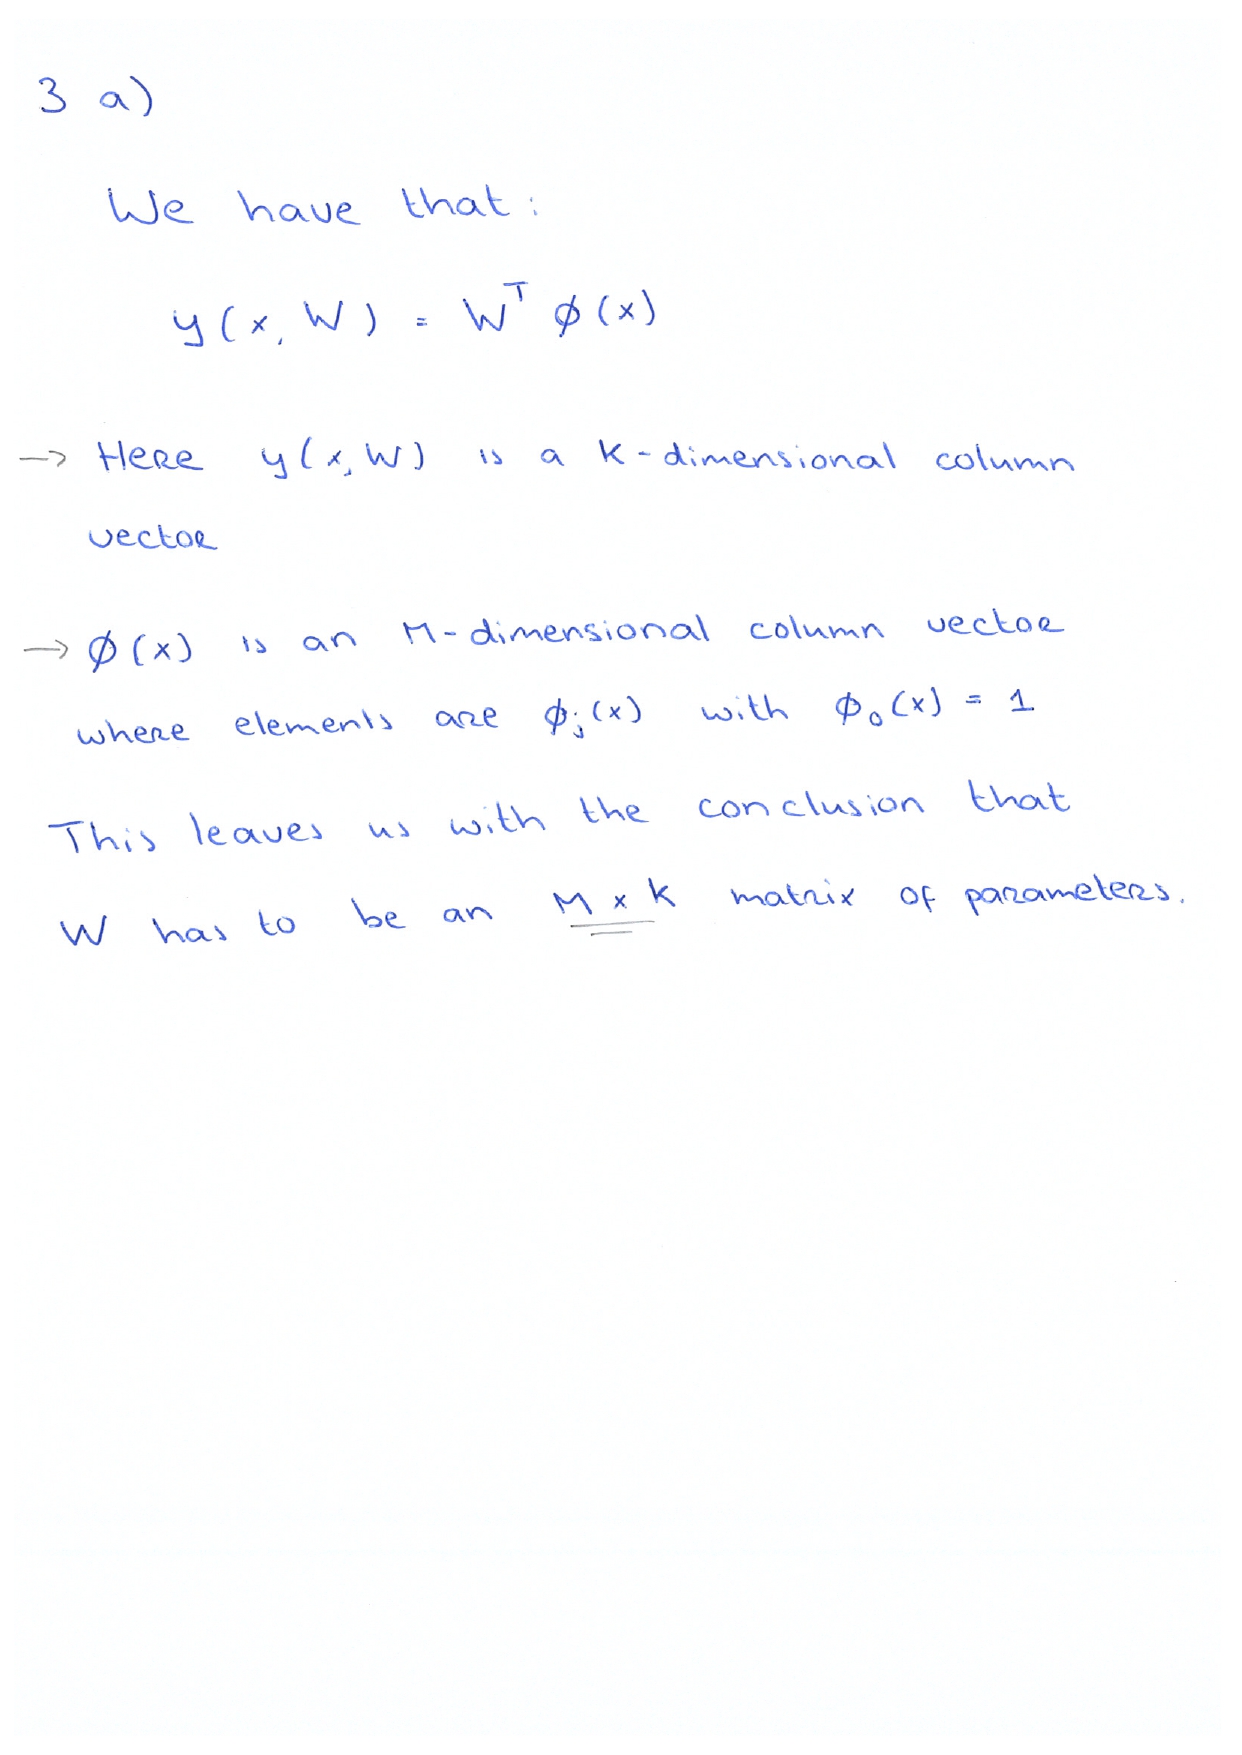 3 a)
We have that:
y(x, W) = Wᵀ ϕ(x)
→ Here y(x, W) is a K-dimensional column
vector
→ ϕ(x) is an M-dimensional column vector
where elements are ϕⱼ(x) with ϕ₀(x) = 1
This leaves us with the conclusion that
W has to be an M × K matrix of parameters.